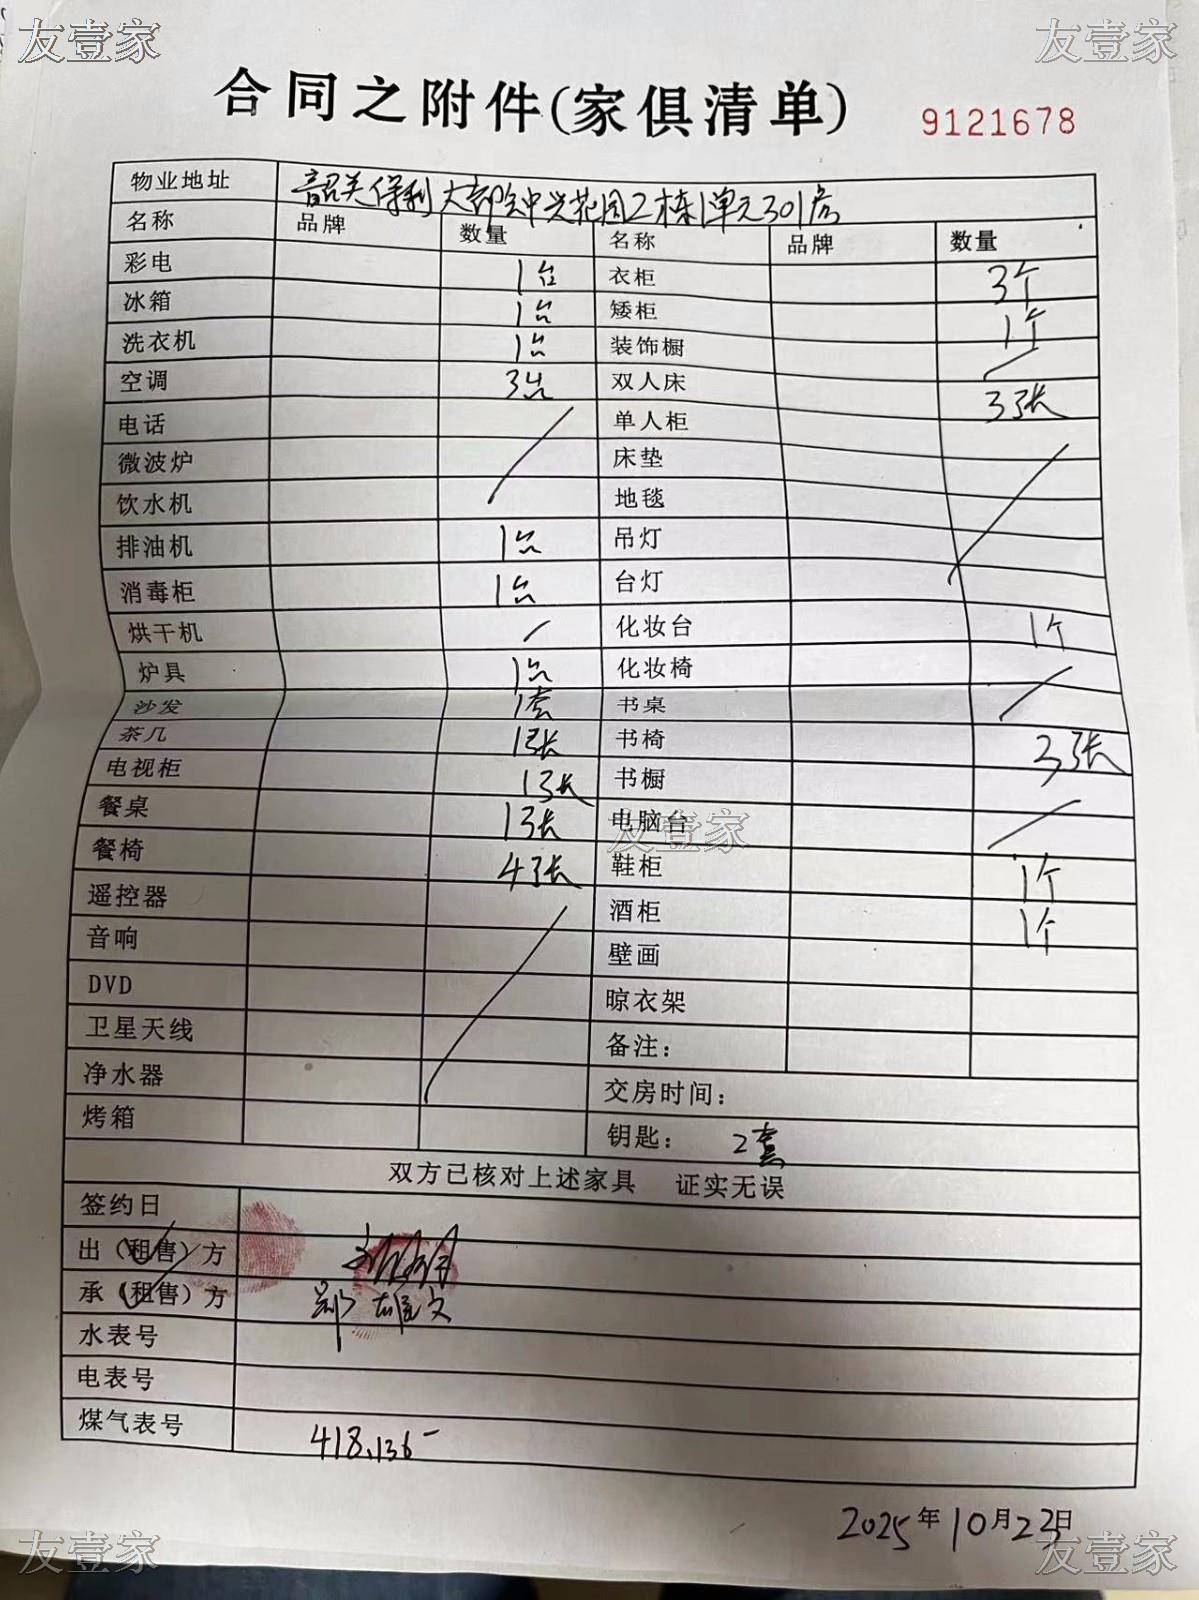 友壹家 友壹家
合同之附件(家俱清单) 9121678
物业地址 韶关保利大都会中兴花园2栋1单元301房
名称 品牌 数量 名称 品牌 数量
彩电 1台 衣柜 3个
冰箱 1台 矮柜 1个
洗衣机 1台 装饰橱
空调 3台 双人床 3张
电话 单人柜
微波炉 床垫
饮水机 地毯
排油机 1台 吊灯
消毒柜 1台 台灯
烘干机 化妆台 1个
炉具 1台 化妆椅
沙发 1套 书桌
茶几 1张 书椅 3张
电视柜 1张 书橱
餐桌 1张 电脑台
友壹家
餐椅 4张 鞋柜 1个
遥控器 酒柜 1个
音响 壁画
DVD 晾衣架
卫星天线 备注：
净水器 交房时间：
烤箱 钥匙： 2套
双方已核对上述家具 证实无误
签约日
出（租售）方
承（租售）方 郑雄文
水表号
电表号
煤气表号 418.136
2025年10月23日
友壹家 友壹家